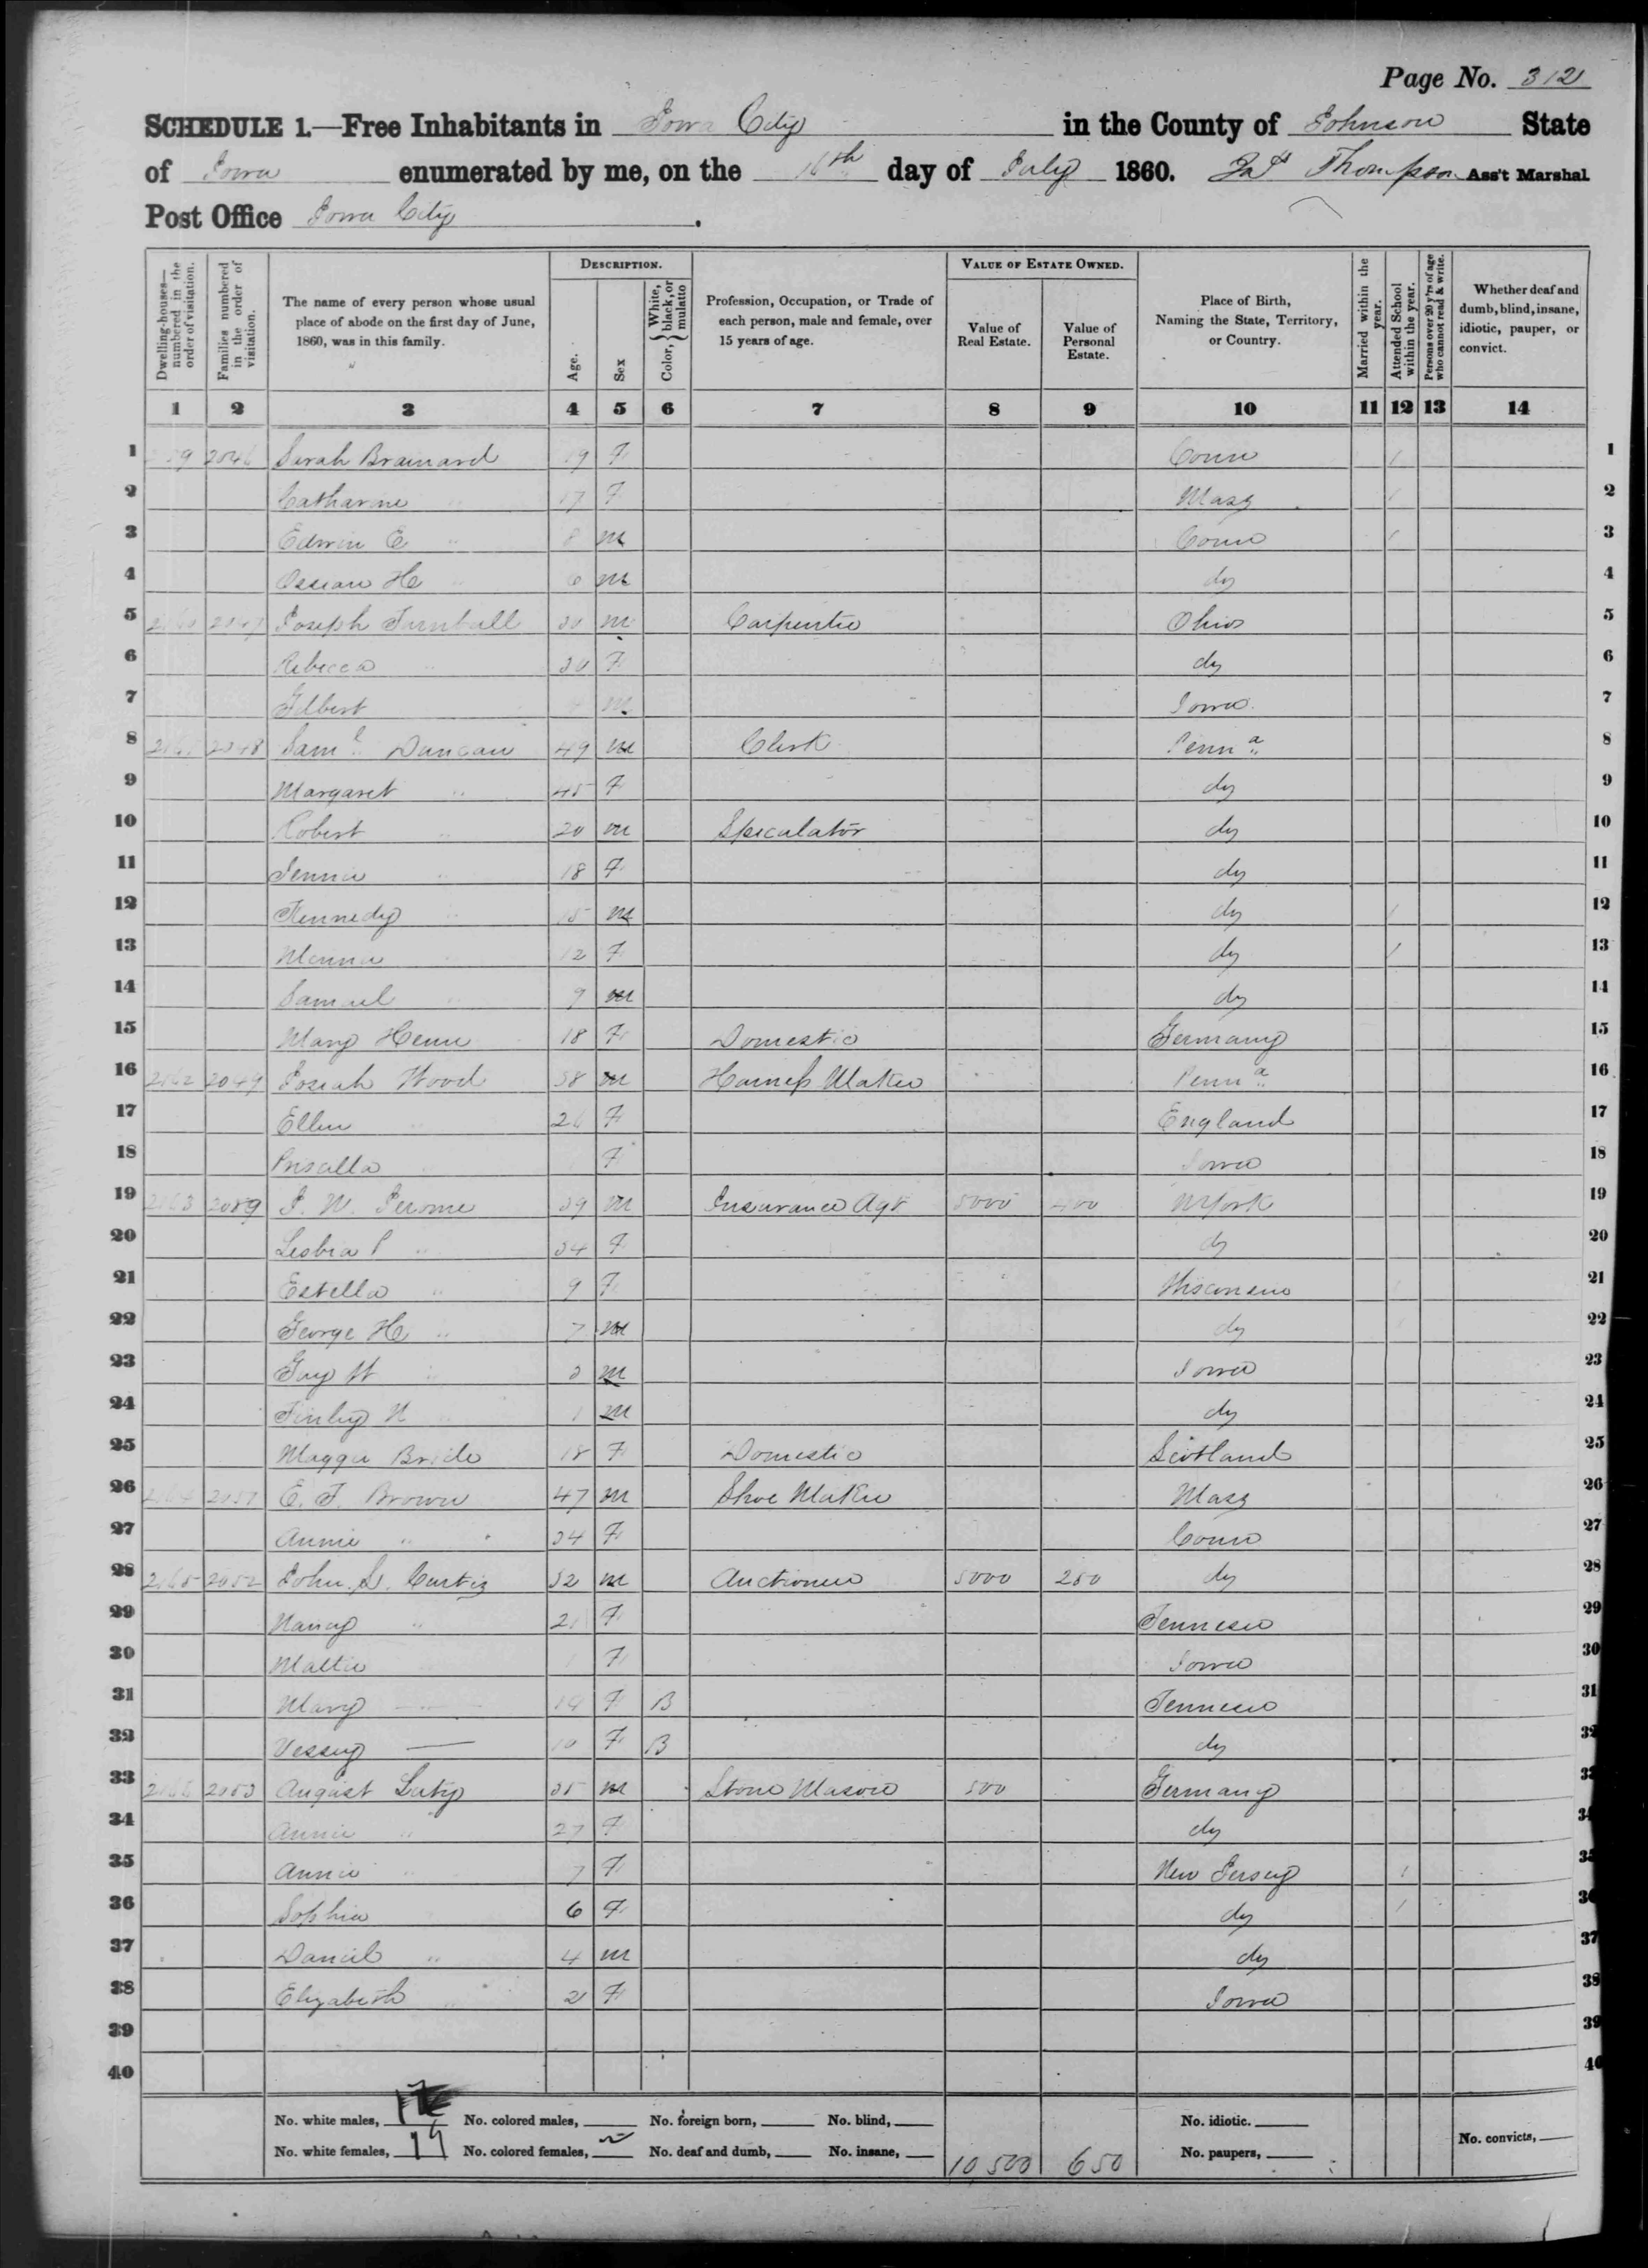 Page No. 312
SCHEDULE 1.—Free Inhabitants in Iowa City in the County of Johnson State
of Iowa enumerated by me, on the 16th day of July 1860. Jas Thompson Ass't Marshal
Post Office Iowa City.
Dwelling-houses—numbered in the order of visitation.
Families numbered in the order of visitation.
The name of every person whose usual place of abode on the first day of June, 1860, was in this family.
DESCRIPTION.
Age.
Sex
Color, { White, black, or mulatto
Profession, Occupation, or Trade of each person, male and female, over 15 years of age.
VALUE OF ESTATE OWNED.
Value of Real Estate.
Value of Personal Estate.
Place of Birth, Naming the State, Territory, or Country.
Married within the year.
Attended School within the year.
Persons over 20 y'rs of age who cannot read & write.
Whether deaf and dumb, blind, insane, idiotic, pauper, or convict.
1 2 3 4 5 6 7 8 9 10 11 12 13 14
1 2046 Sarah Brainard 19 F Conn 1 1
2 Catharine " 17 F Mass 1 2
3 Edwin E " 8 m Conn 1 3
4 Ossian H " 6 m do 4
5 2047 Joseph Turnball 30 m Carpenter Ohio 5
6 Rebecca " 30 F do 6
7 Gilbert m Iowa 7
8 2048 Saml Duncan 49 m Clerk Penna 8
9 Margaret " 45 F do 9
10 Robert " 20 m Speculator do 10
11 Jennie " 18 F do 11
12 Kennedy " 15 m do 1 12
13 Minnie 12 F do 1 13
14 Samuel " 9 m do 14
15 Mary Henn 18 F Domestic Germany 15
16 2162 2049 Josiah Wood 38 m Harness Maker Penna 16
17 Ellen " 26 F England 17
18 Priscilla F Iowa 18
19 2163 J. W. Jerome 39 m Insurance Agt 5000 400 N York 19
20 Lesbia P " 34 F do 20
21 Estella " 9 F Wisconsin 21
22 George H " 7 m do 22
23 Guy W " 3 m Iowa 23
24 Finley N " 1 m do 24
25 Maggie Bride 18 F Domestic Scotland 25
26 2164 2051 E. T. Brown 47 m Shoe Maker Mass 26
27 Annie " 34 F Conn 27
28 2165 2052 John S. Curtis 32 m Auctioneer 5000 250 do 28
29 Nancy " 21 F Tennesee 29
30 Mattie 1 F Iowa 30
31 Mary — 14 F B Tennesee 31
32 Vessey — 10 F B do 32
33 2166 2053 August Luty 35 m Stone Mason 500 Germany 33
34 Annie " 27 F do 34
35 Annie " 7 F New Jersey 1 35
36 Sophia 6 F do 1 36
37 Daniel " 4 m do 37
38 Elizabeth " 2 F Iowa 38
39 39
40 40
No. white males, 17 No. colored males, No. foreign born, No. blind, No. idiotic.
No. white females, 19 No. colored females, 2 No. deaf and dumb, No. insane, 10,500 650 No. paupers, No. convicts,